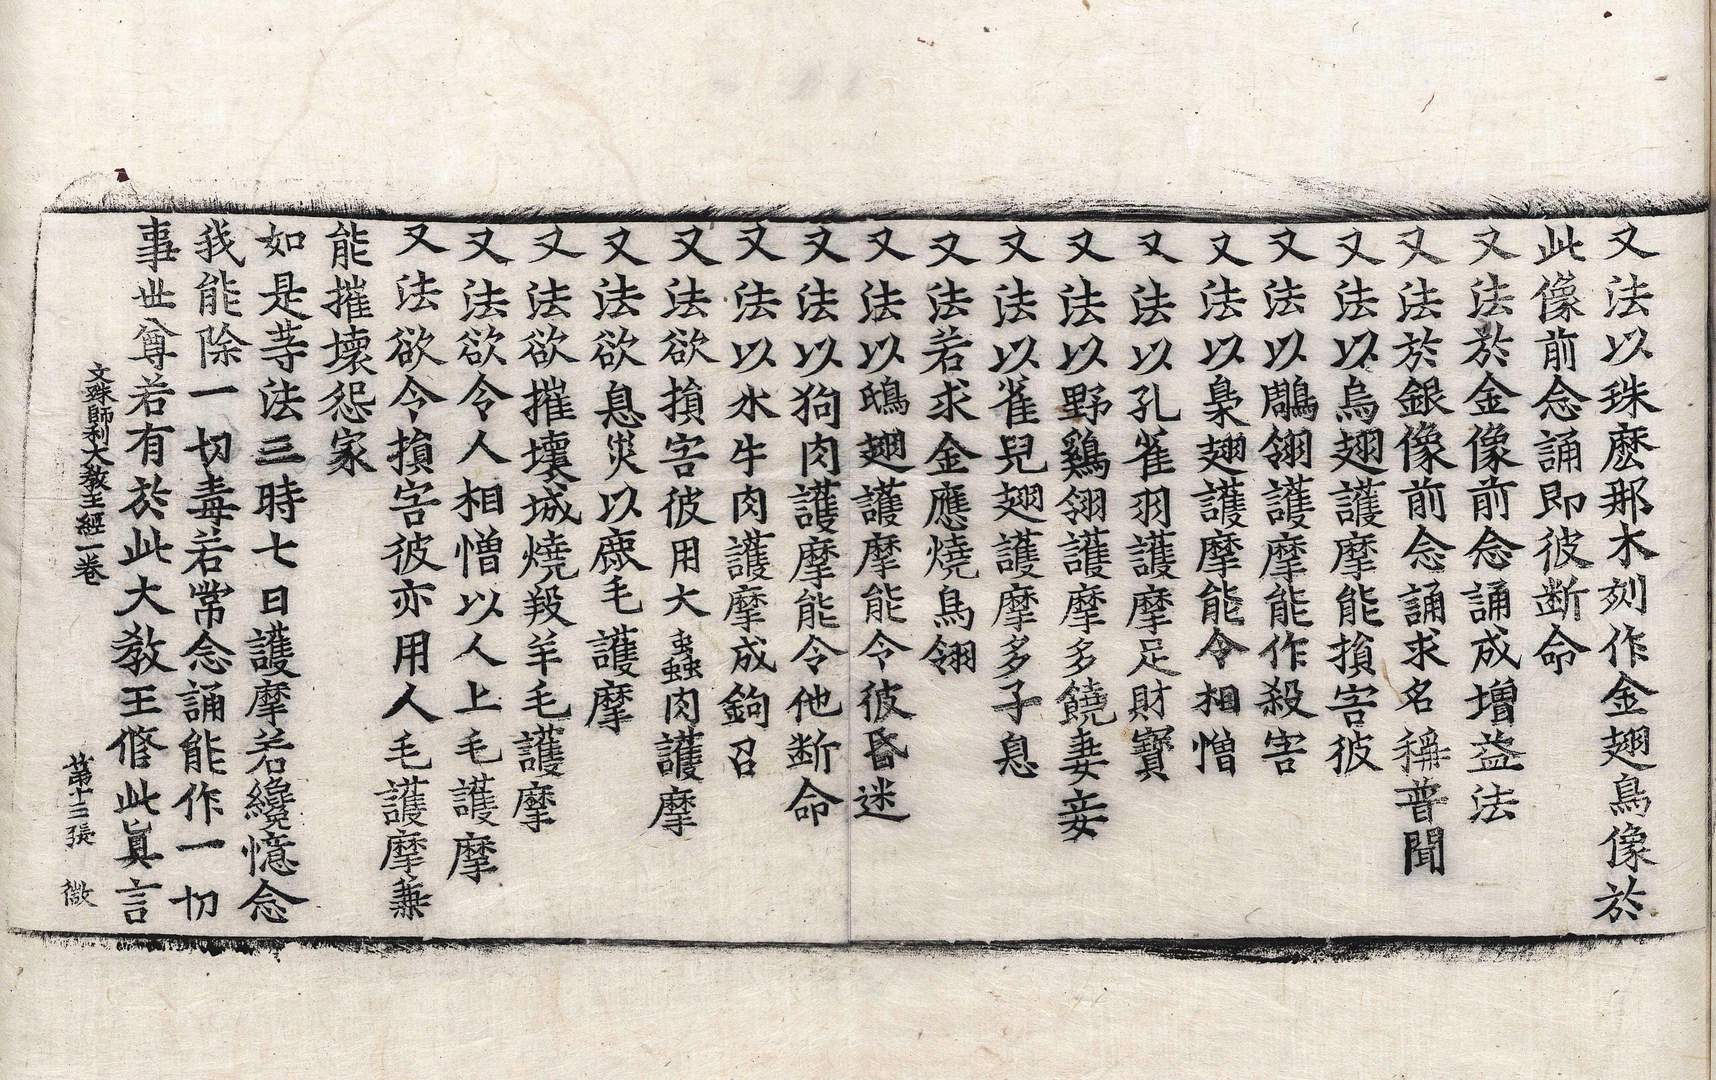 又法以珠麽那木刻作金翅鳥像於
此像前念誦即彼断命
又法於金像前念誦成增益法
又法於銀像前念誦求名稱普聞
又法以烏翅護摩能損害彼
又法以鷳翎護摩能作殺害
又法以梟翅護摩能令相憎
又法以孔雀羽護摩足財寶
又法以野鷄翎護摩多饒妻妾
又法以雀兒翅護摩多子息
又法若求金應燒鳥翎
又法以鴟翅護摩能令彼昏迷
又法以狗肉護摩能令他断命
又法以水牛肉護摩成鉤召
又法欲損害彼用大蟲肉護摩
又法欲息災以鹿毛護摩
又法欲摧壞城燒羖羊毛護摩
又法欲令人相憎以人上毛護摩
又法欲令損害彼亦用人毛護摩兼
能摧壞怨家
如是等法三時七日護摩若纔憶念
我能除一切毒若常念誦能作一切
事世尊若有於此大教王俻此真言
文殊師利大教王經一卷 第十三張 微